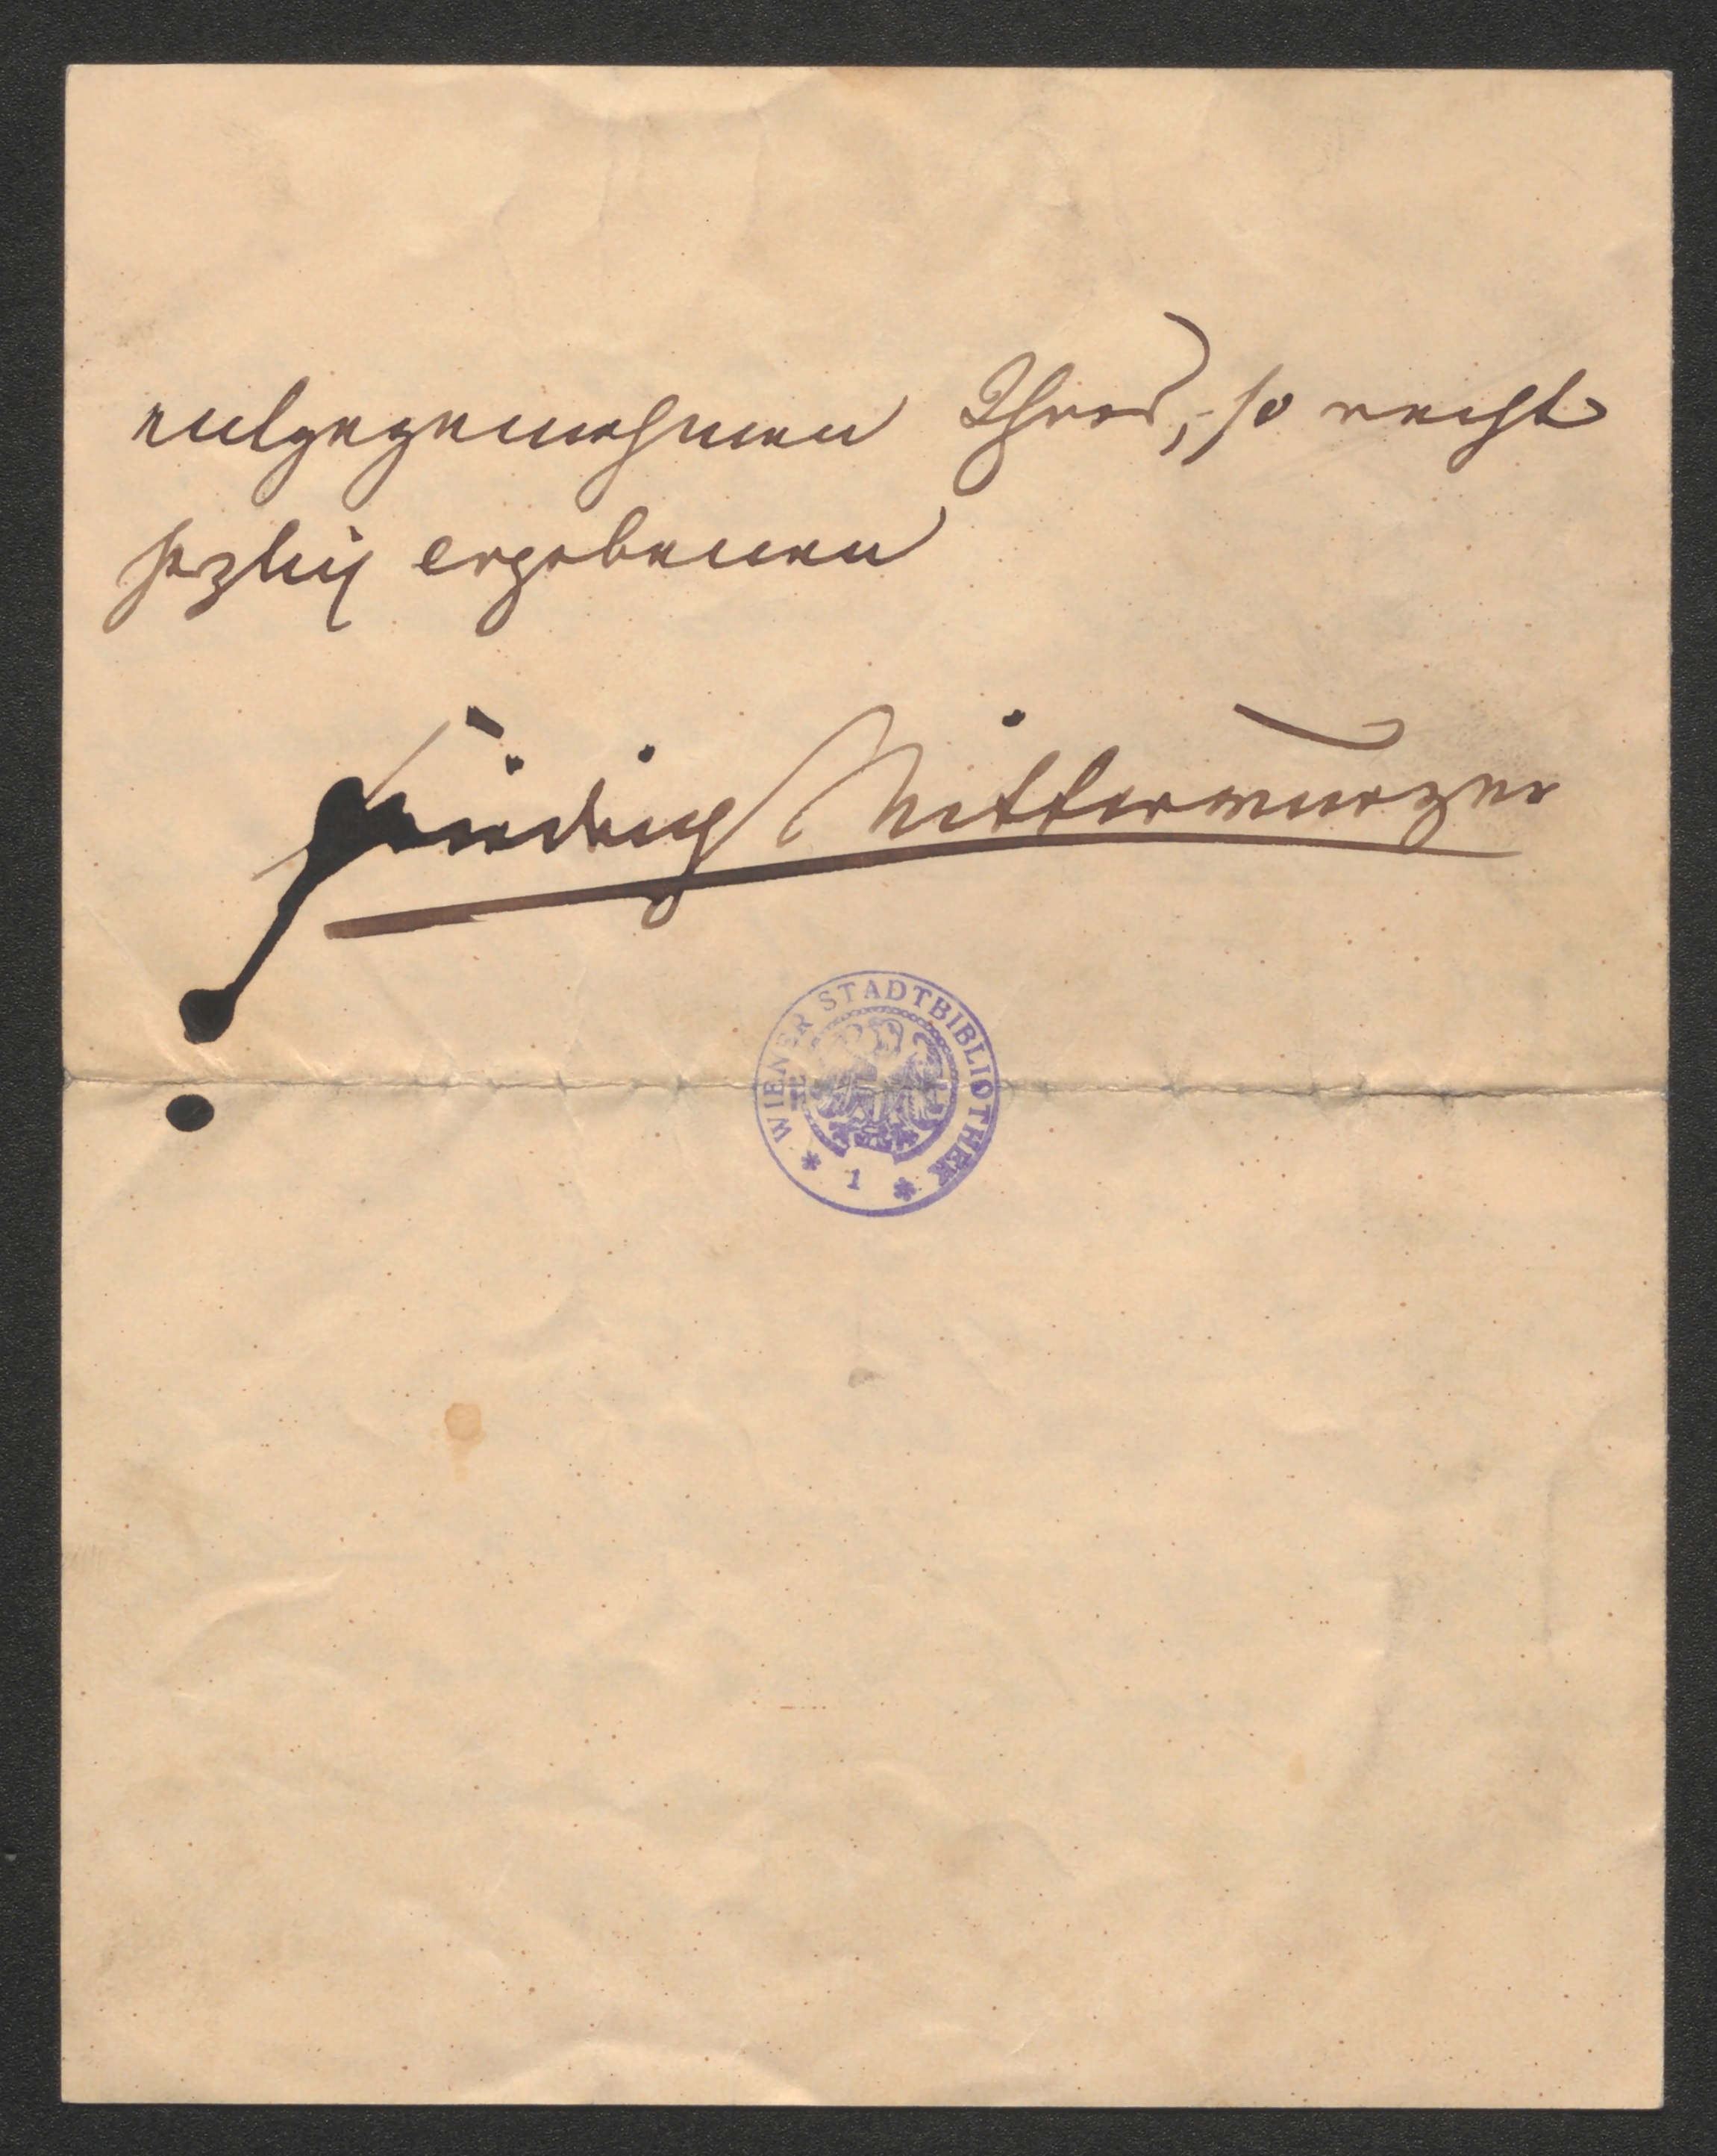 entgegennehmen Ihres, so recht
herzlich ergebenen
Friedrich Mitterwurzer
WIENER STADTBIBLIOTHEK
* 1 *